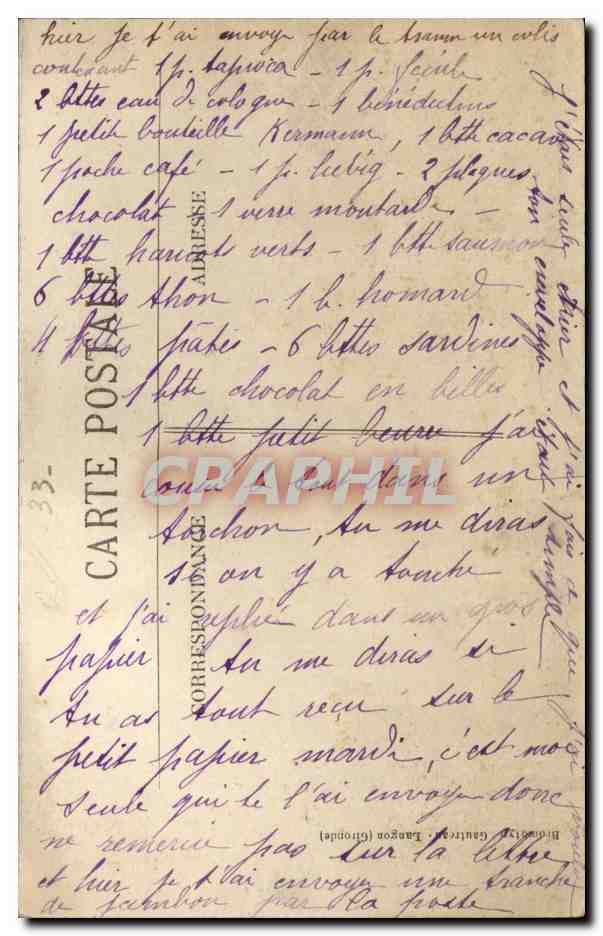 hier je t'ai envoyé par le tramm un colis
contenant 1 p. tapioca - 1 p. fécule
2 bttes eau de cologne - 1 bénédictins
1 petit bouteille Kermann, 1 btte cacao
1 poche café - 1 p. liebig - 2 plaques
chocolat 1 verre moutarde -
1 btte haricots verts - 1 btte saumon
6 bttes thon - 1 b. homard
4 bttes pâtés - 6 bttes sardines
1 btte chocolat en billes
1 btte petit beurre j'ai
cousu le tout dans un
tochon, tu me diras
si on y a touché
et j'ai replié dans un gros
papier tu me diras si
tu as tout reçu sur le
petit papier mardi, c'est moi
seule qui te l'ai envoyé donc
ne remercie pas sur la lettre
et hier je t'ai envoyé une tranche
de jambon par la poste
j'étais seule hier et j'ai fais ce que j'ai
ton enveloppe étant simple
CARTE POSTALE
ADRESSE
CORRESPONDANCE
33-
Bromotyp. Gautreau - Langon (Gironde)
CPAPHIL